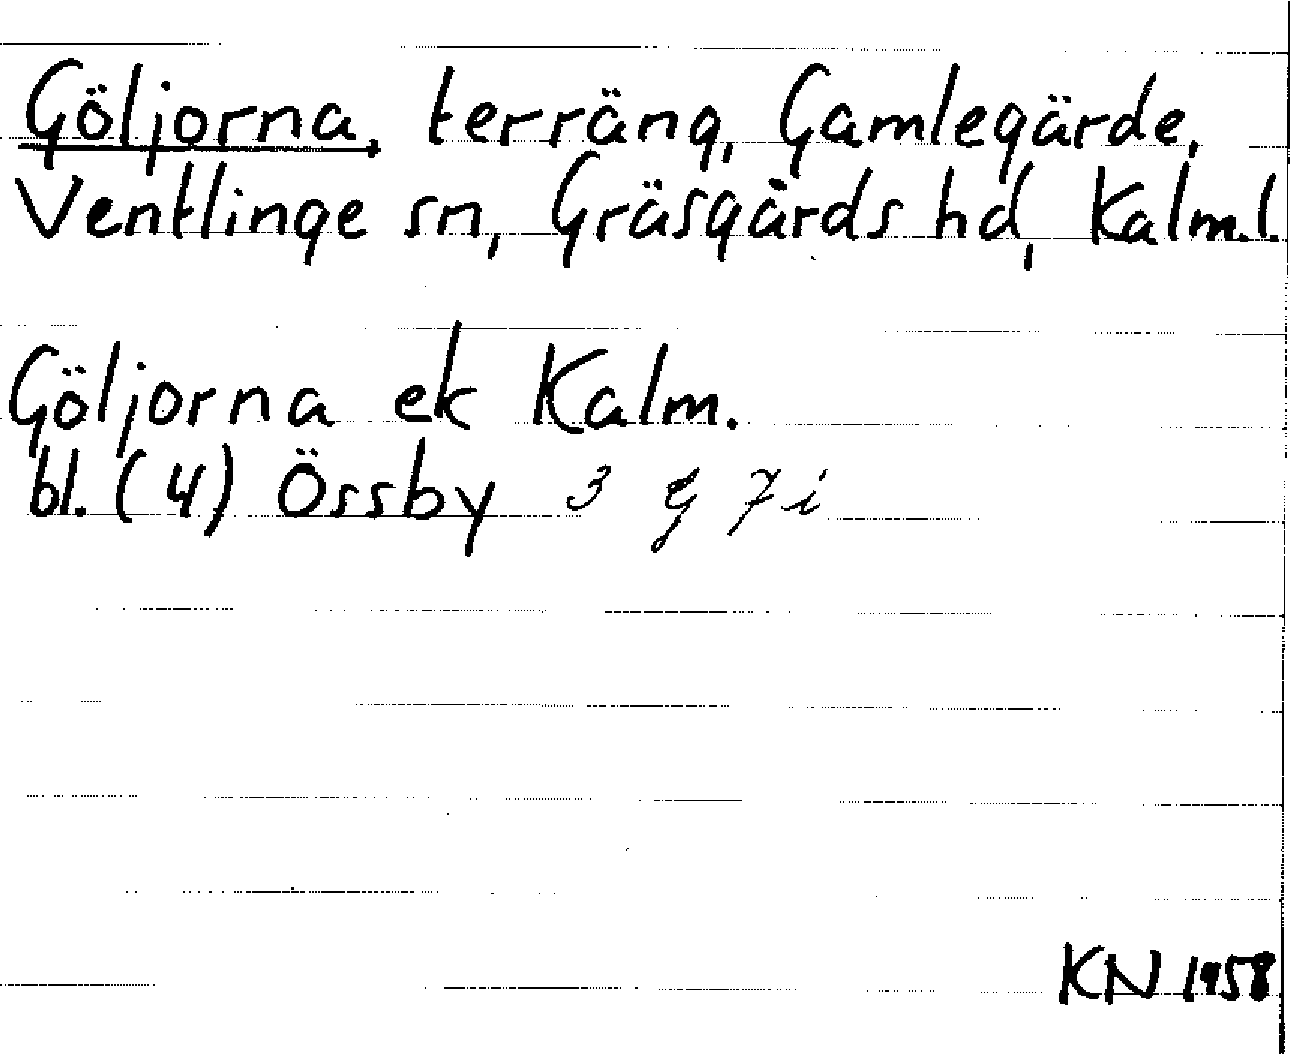 Göljorna, terräng, Gamlegärde,
Ventlinge sn, Gräsgårds hd, Kalm.l.
Göljorna ek Kalm.
bl. (4) Össby 3 g 7i
KN 1958